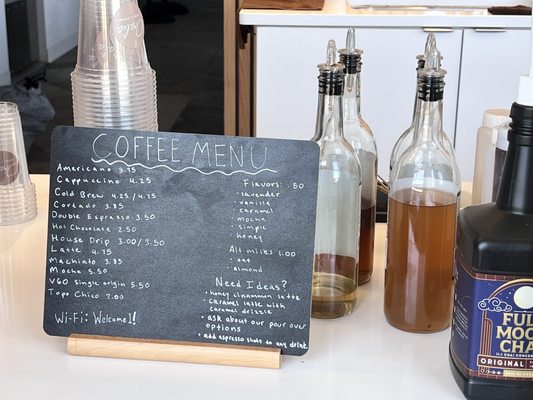 COFFEE MENU
Americano 3.75
Cappuccino 4.25
Cold Brew 4.25
Cortado 3.85
Double Espresso 3.50
Hot Chocolate 2.50
House Drip 3.00/3.50
Latte 4.75
Machiato 3.85
Mocha 5.50
V60 Single origin 5.50
Topo Chico 2.00
Wi-Fi: Welcome1!
Flavors: .50
• lavender
• vanilla
• caramel
• mocha
• simple
• honey
Alt milks 1.00
• oat
• almond
Need Ideas?
• honey cinnamon latte
• caramel latte with
caramel drizzle
• ask about our pour over
options
• add espresso shots to any drink
FULL
MOON
CHAI
11:1 CHAI CONCENTRATE
ORIGINAL